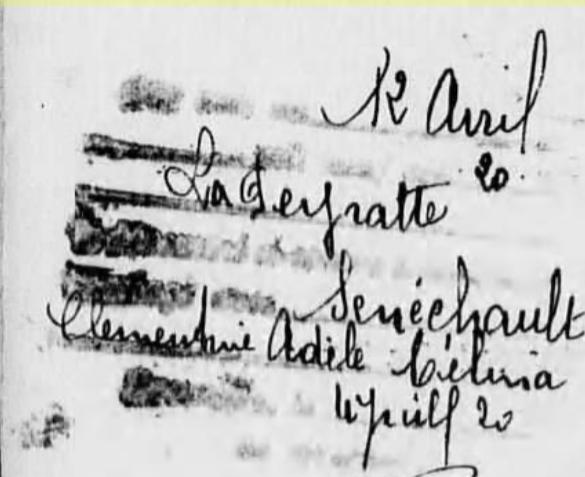 12 Avril
20.
La Peyratte
Senéchault
Clementine Adèle Célina
4 juill 20